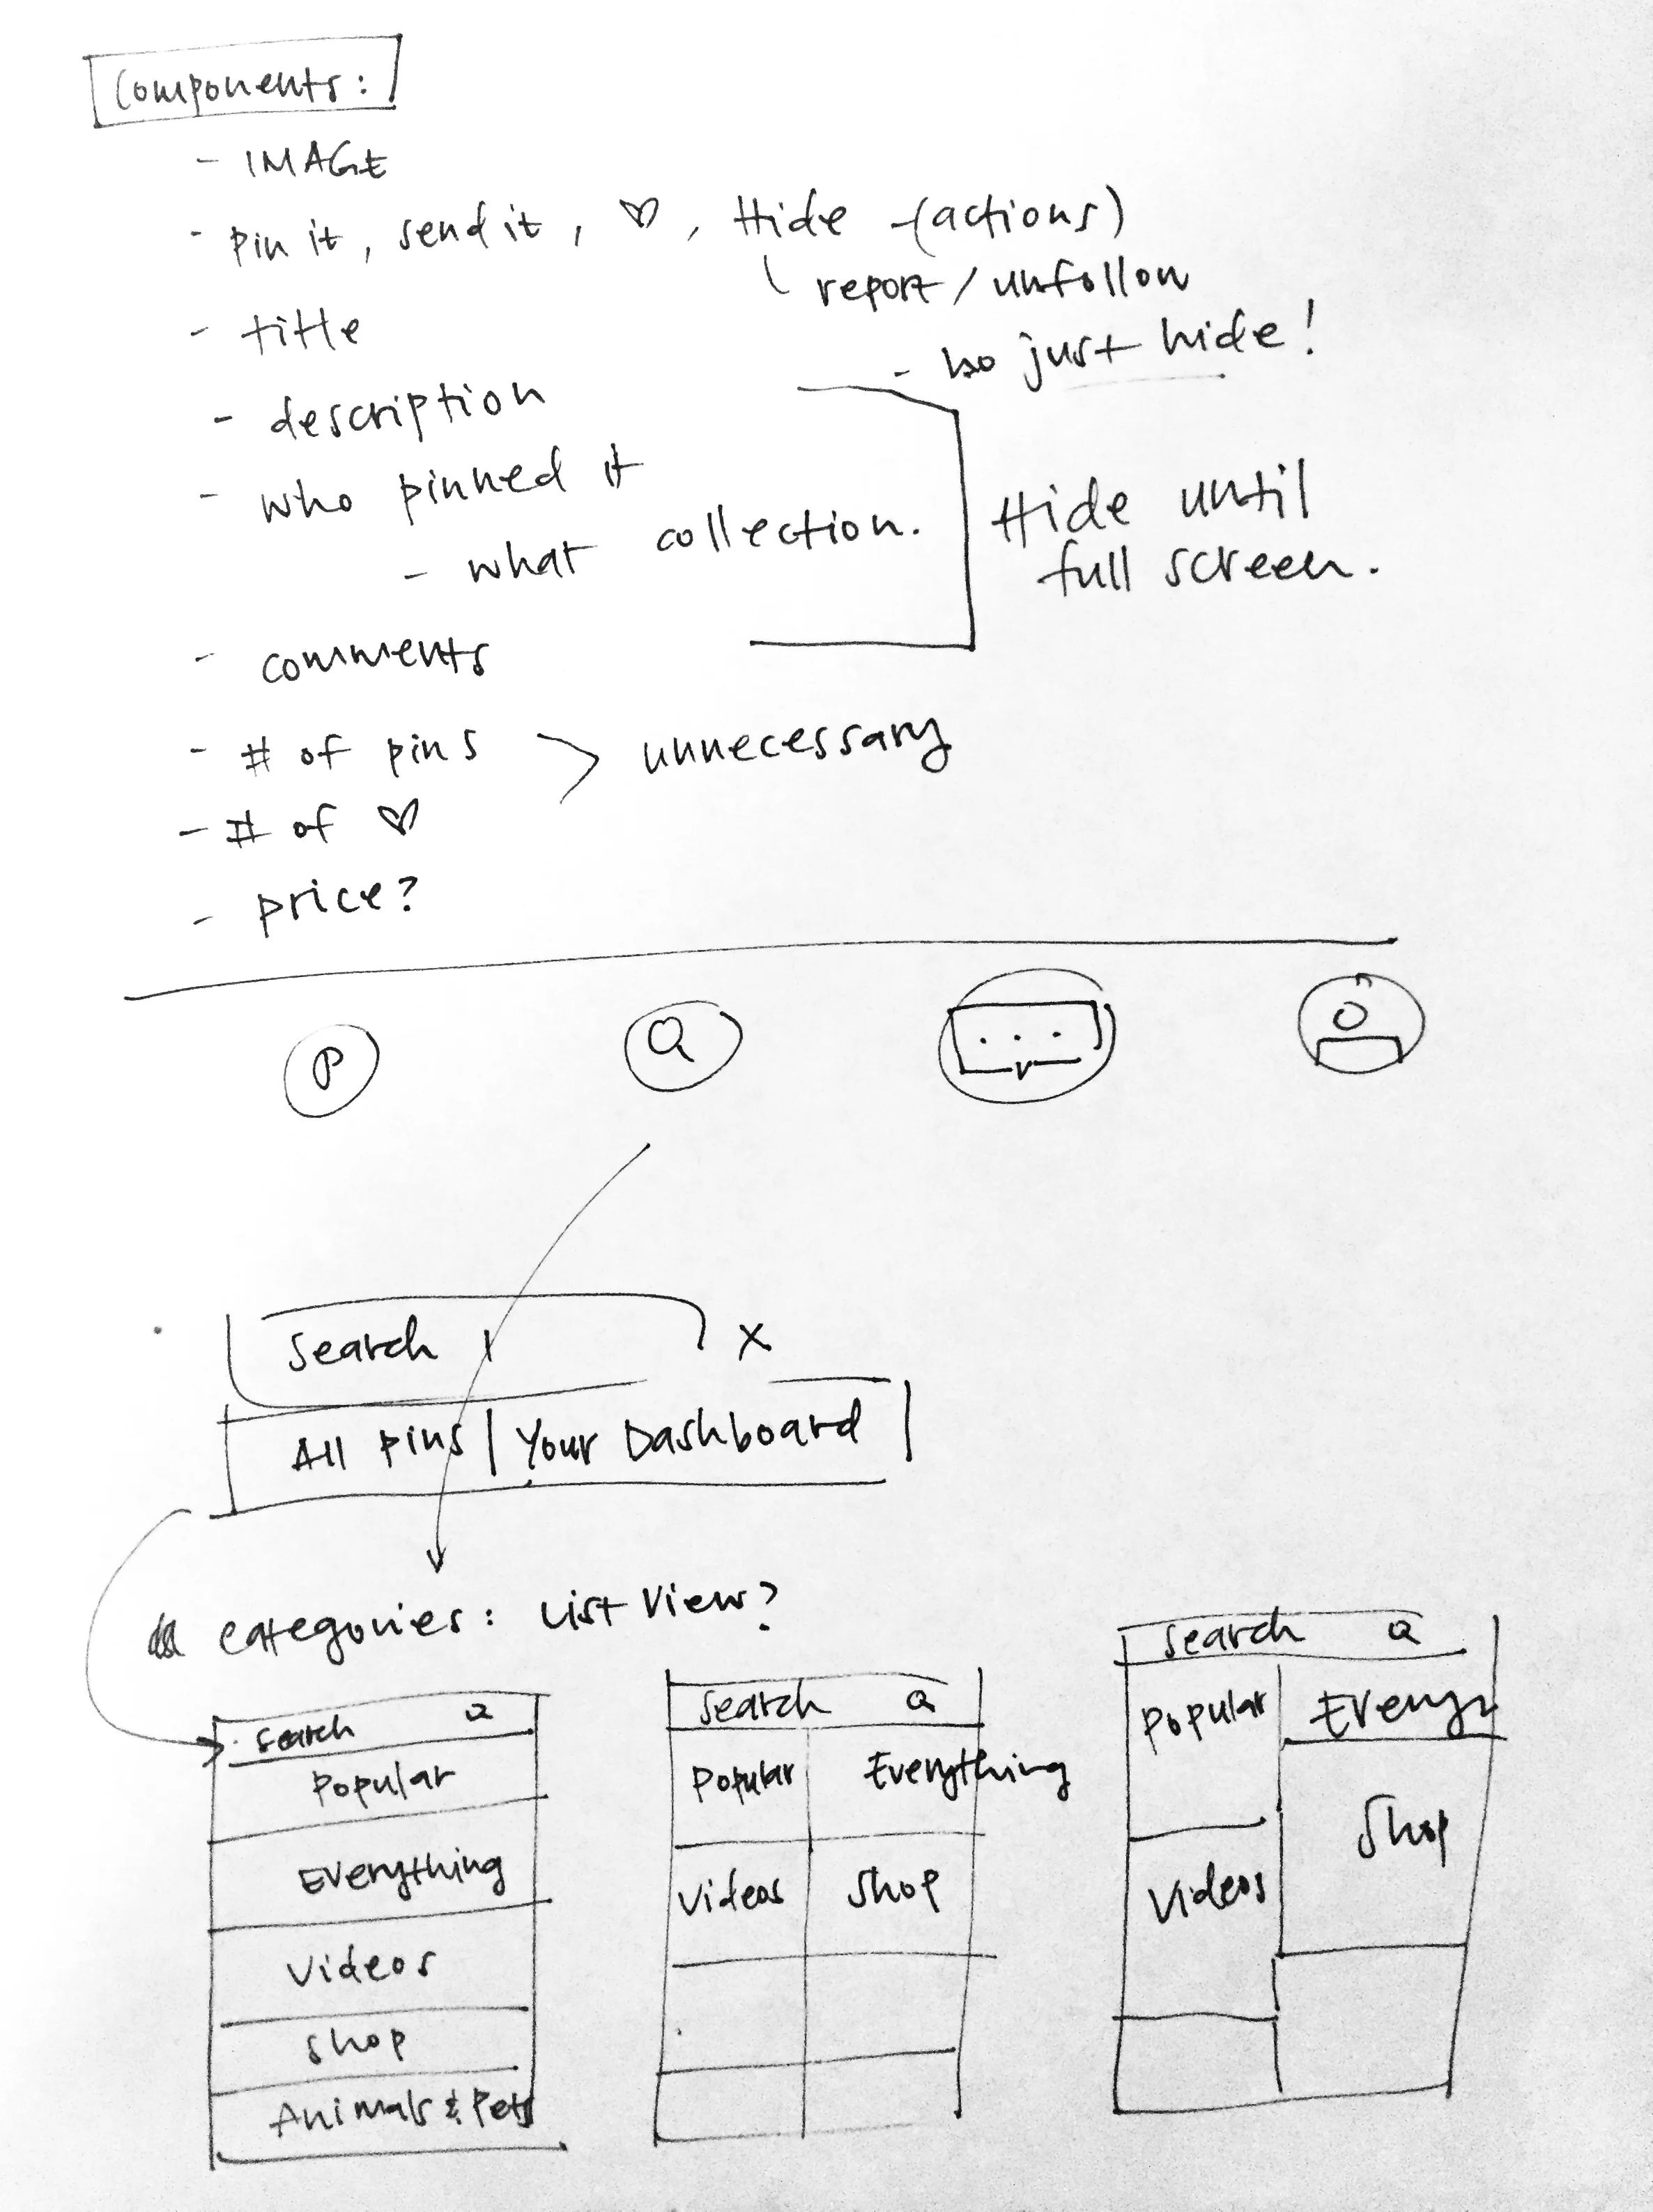 Components:
- IMAGE
- pin it, send it, ♡, Hide -(actions)
report/unfollow
- so just hide!
- title
- description
- who pinned it
- what collection.
Hide until
full screen.
- comments
- # of pins > unnecessary
- # of ♡
- price?
P
Search X
All pins | Your Dashboard
categories: List View?
Search
Popular
Everything
Videos
Shop
Animals & Pets
Search
Popular Everything
Videos Shop
Search
Popular Everyt
Shop
Videos